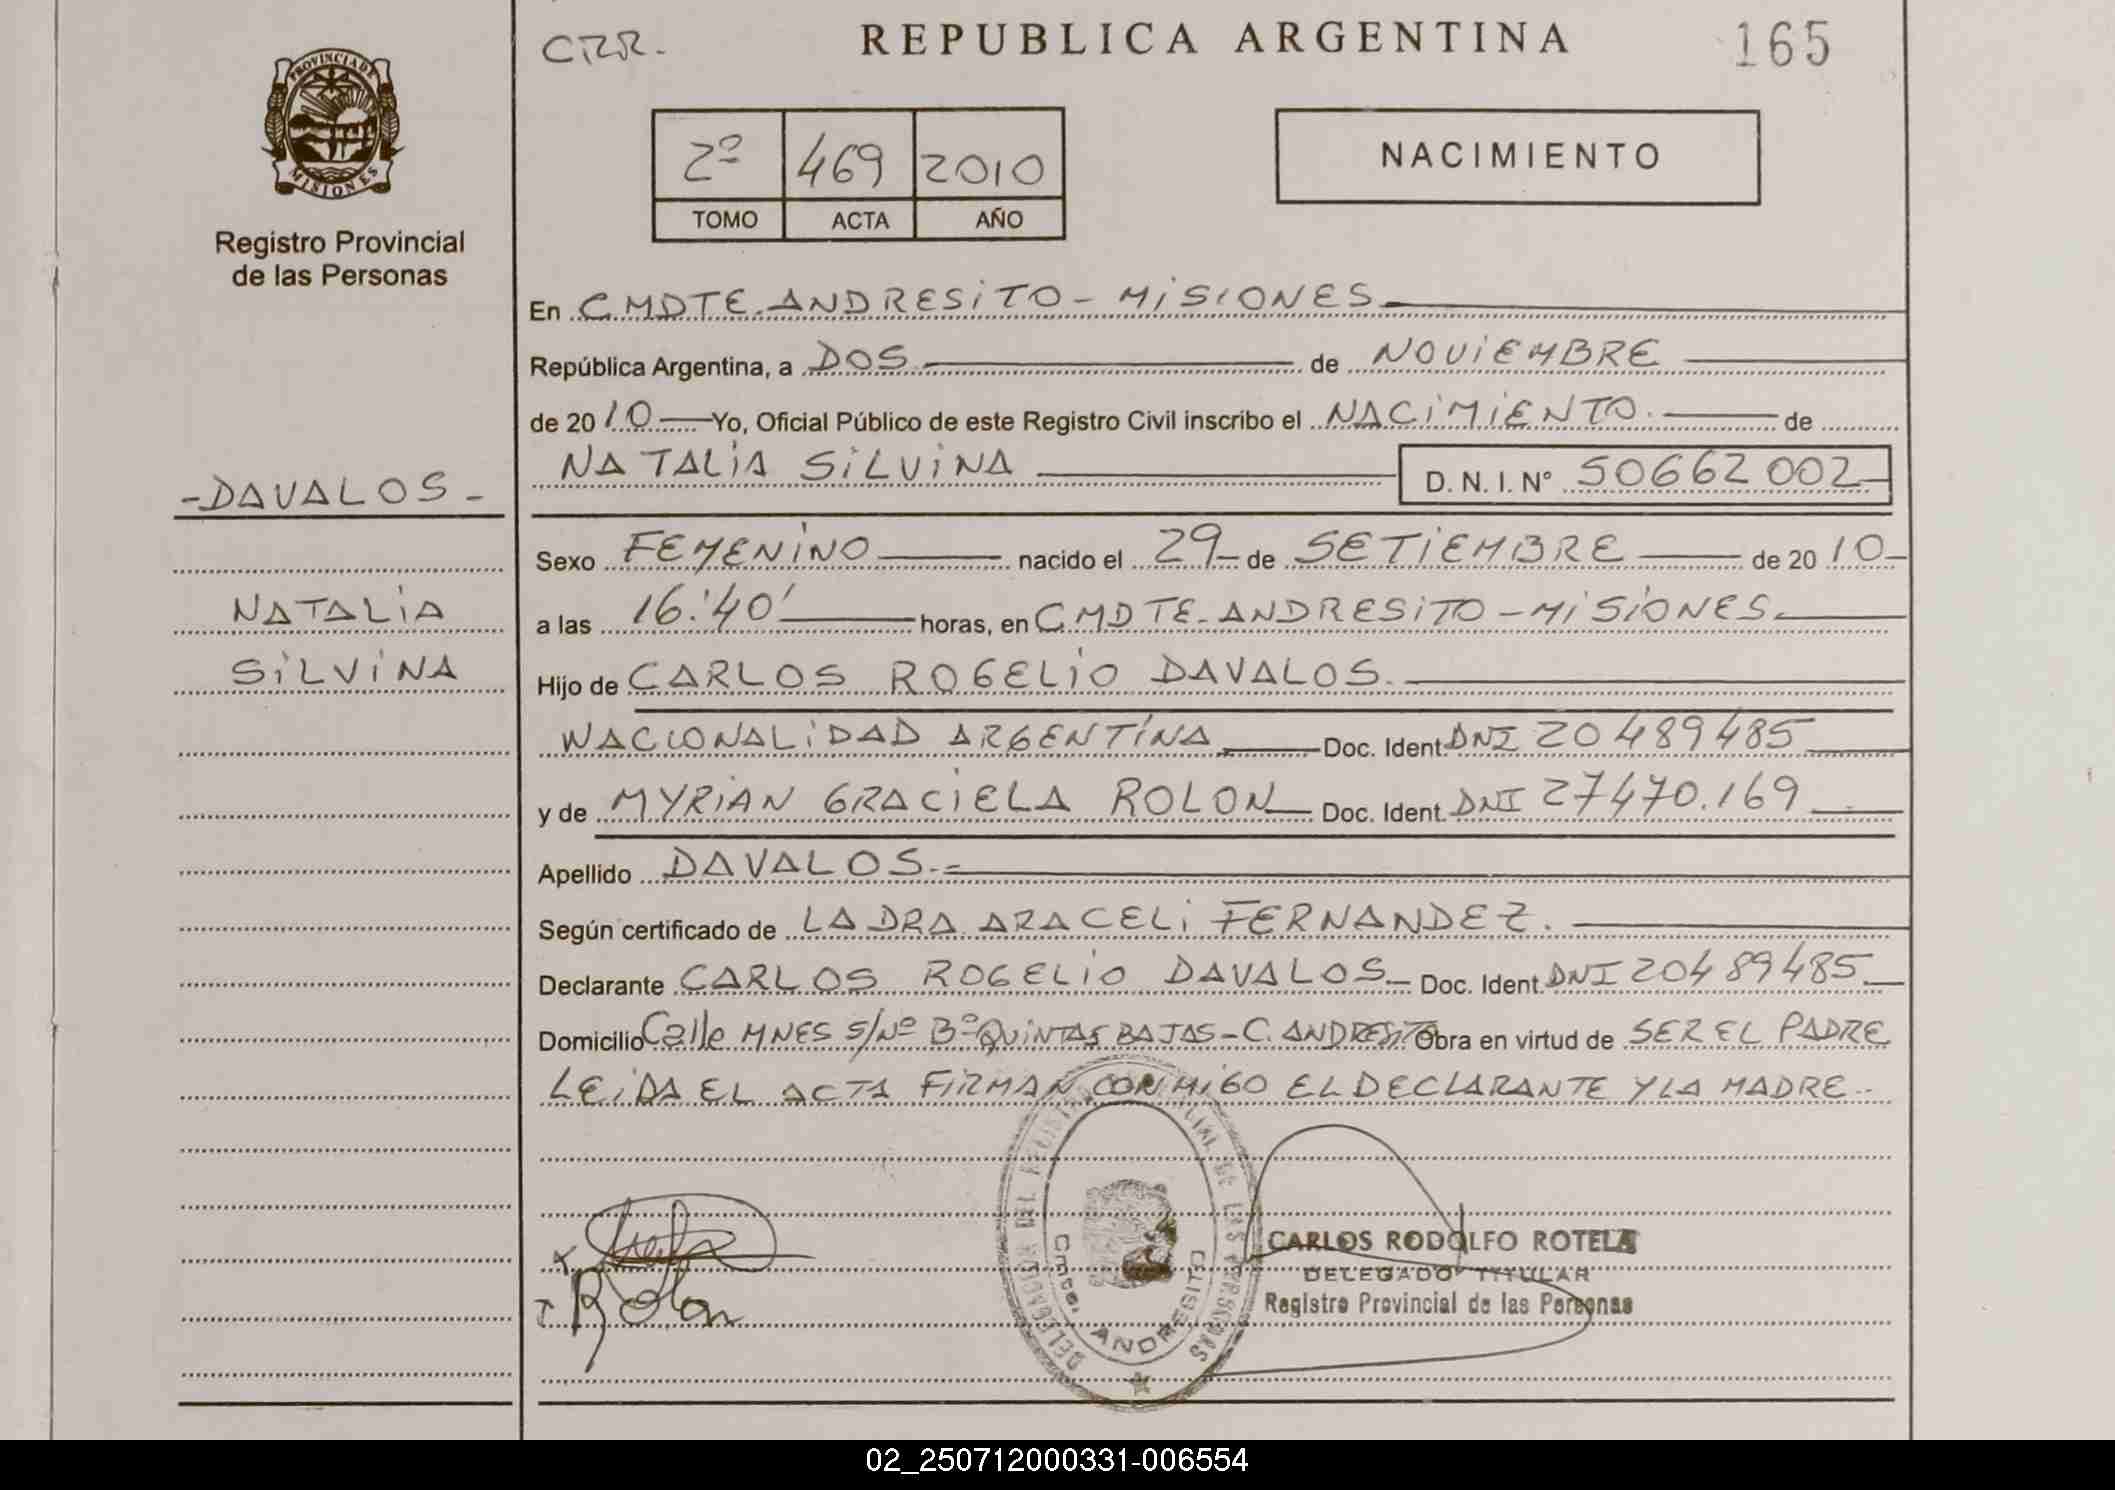 CRR.
REPUBLICA ARGENTINA
165
PROVINCIA DE
MISIONES
Registro Provincial
de las Personas
2º 469 2010
TOMO ACTA AÑO
NACIMIENTO
En CMDTE. ANDRESiTO - MiSIONES
República Argentina, a DOS de NOViEMBRE
de 2010 Yo, Oficial Público de este Registro Civil inscribo el NACiMiENTO. de
NATALiA SiLViNA D. N. I. Nº 50662002
- DAVALOS -
NATALiA
SiLViNA
Sexo FEMENiNO nacido el 29 de SETiEMBRE de 2010
a las 16:40' horas, en CMDTE. ANDRESiTO - MiSiONES
Hijo de CARLOS ROGELiO DAVALOS.
NACIONALiDAD ARGENTiNA Doc. Ident. DNI 20489485
y de MYRiAN GRACiELA ROLON Doc. Ident. DNI 27470.169
Apellido DAVALOS.-
Según certificado de LA DRA. ARACELi FERNANDEZ.
Declarante CARLOS ROGELiO DAVALOS Doc. Ident DNI 20489485
Domicilio Calle MNES S/Nº Bº QUiNTAS BAJAS - C. ANDRESiTO Obra en virtud de SER EL PADRE
LEiDA EL ACTA FiRMAN CONMiGO EL DECLARANTE Y LA MADRE.-
DELEGACION DEL REGISTRO PROVINCIAL DE LAS PERSONAS
Cmte. ANDRESITO
Rolon
CARLOS RODOLFO ROTELA
DELEGADO TITULAR
Registro Provincial de las Personas
02_250712000331-006554